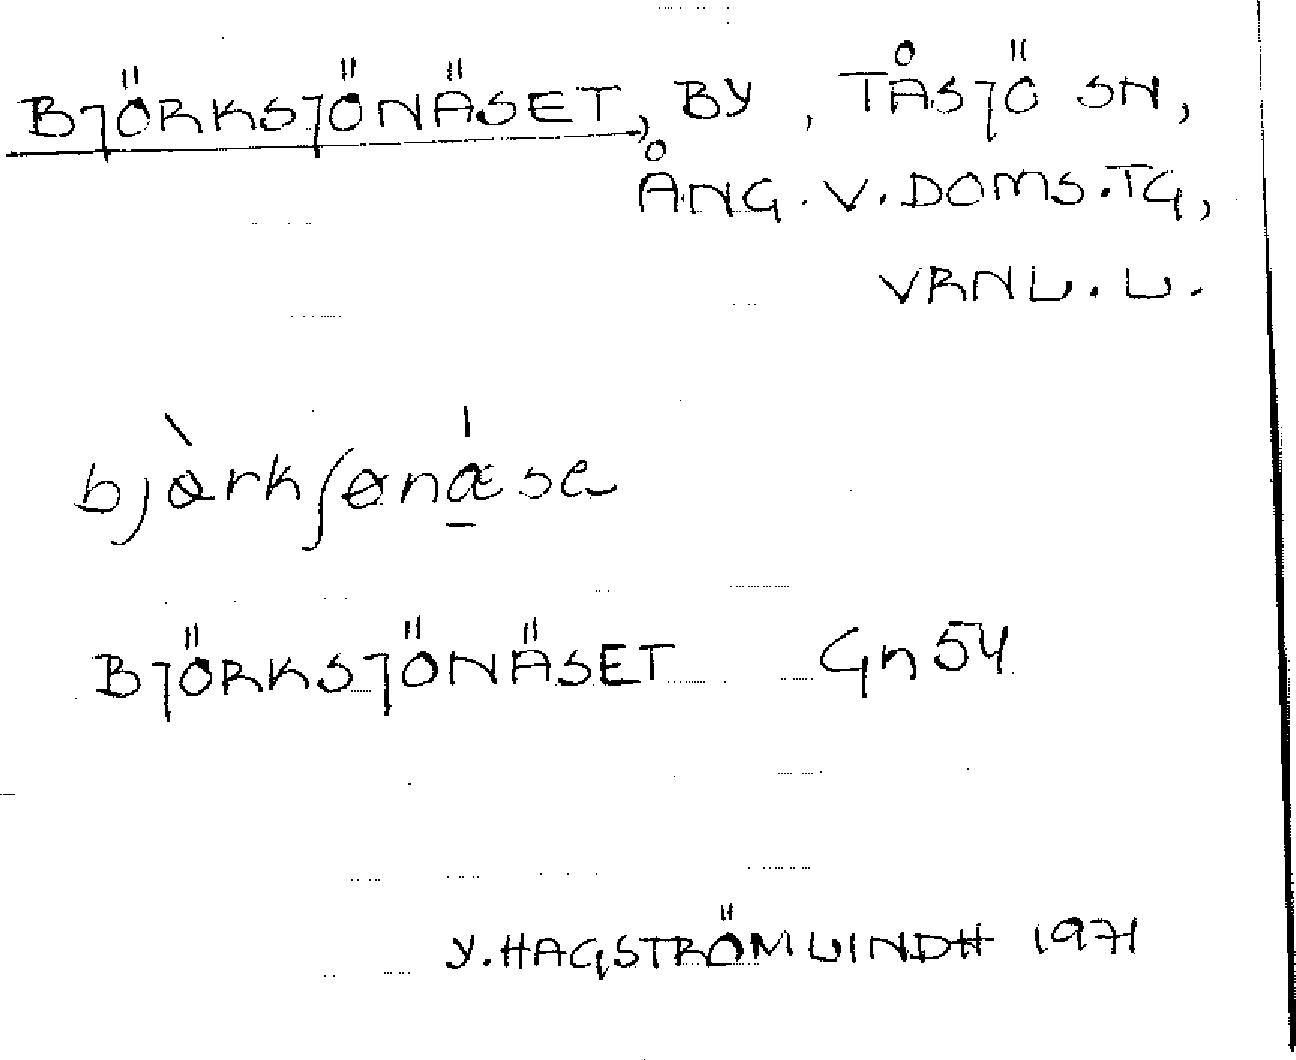 BJÖRKSJÖNÄSET, BY, TÅSJÖ SN,
ÅNG. V. DOMS. TG,
VRNL. L.
bjàrkʃønǽse
BJÖRKSJÖNÄSET Gn54
Y. HAGSTRÖM LINDH 1971